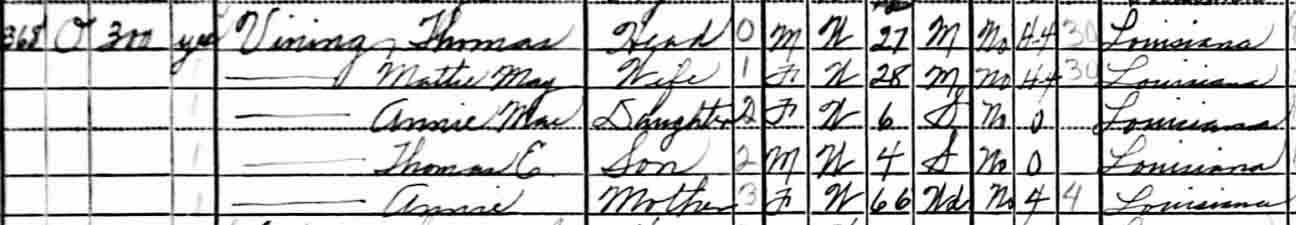 368 O 300 yes Vining, Thomas Head 0 M W 27 M No H-4 30 Louisiana
—— Mattie May Wife 1 F W 28 M No H-4 30 Louisiana
—— Annie Mae Daughter 2 F W 6 S No 0 Louisiana
—— Thomas E. Son 2 M W 4 S No 0 Louisiana
—— Annie Mother 3 F W 66 Wd No 4 4 Louisiana